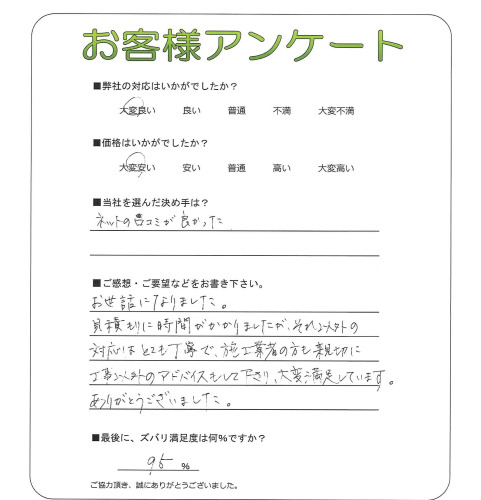 お客様アンケート
■弊社の対応はいかがでしたか？
大変良い 良い 普通 不満 大変不満
■価格はいかがでしたか？
大変安い 安い 普通 高い 大変高い
■当社を選んだ決め手は？
ネットの口コミが良かった
■ご感想・ご要望などをお書き下さい。
お世話になりました。
見積もりに時間がかかりましたが、それ以外の
対応はとても丁寧で、施工業者の方も親切に
工事以外のアドバイスもして下さり、大変満足しています。
ありがとうございました。
■最後に、ズバリ満足度は何％ですか？
95 %
ご協力頂き、誠にありがとうございました。